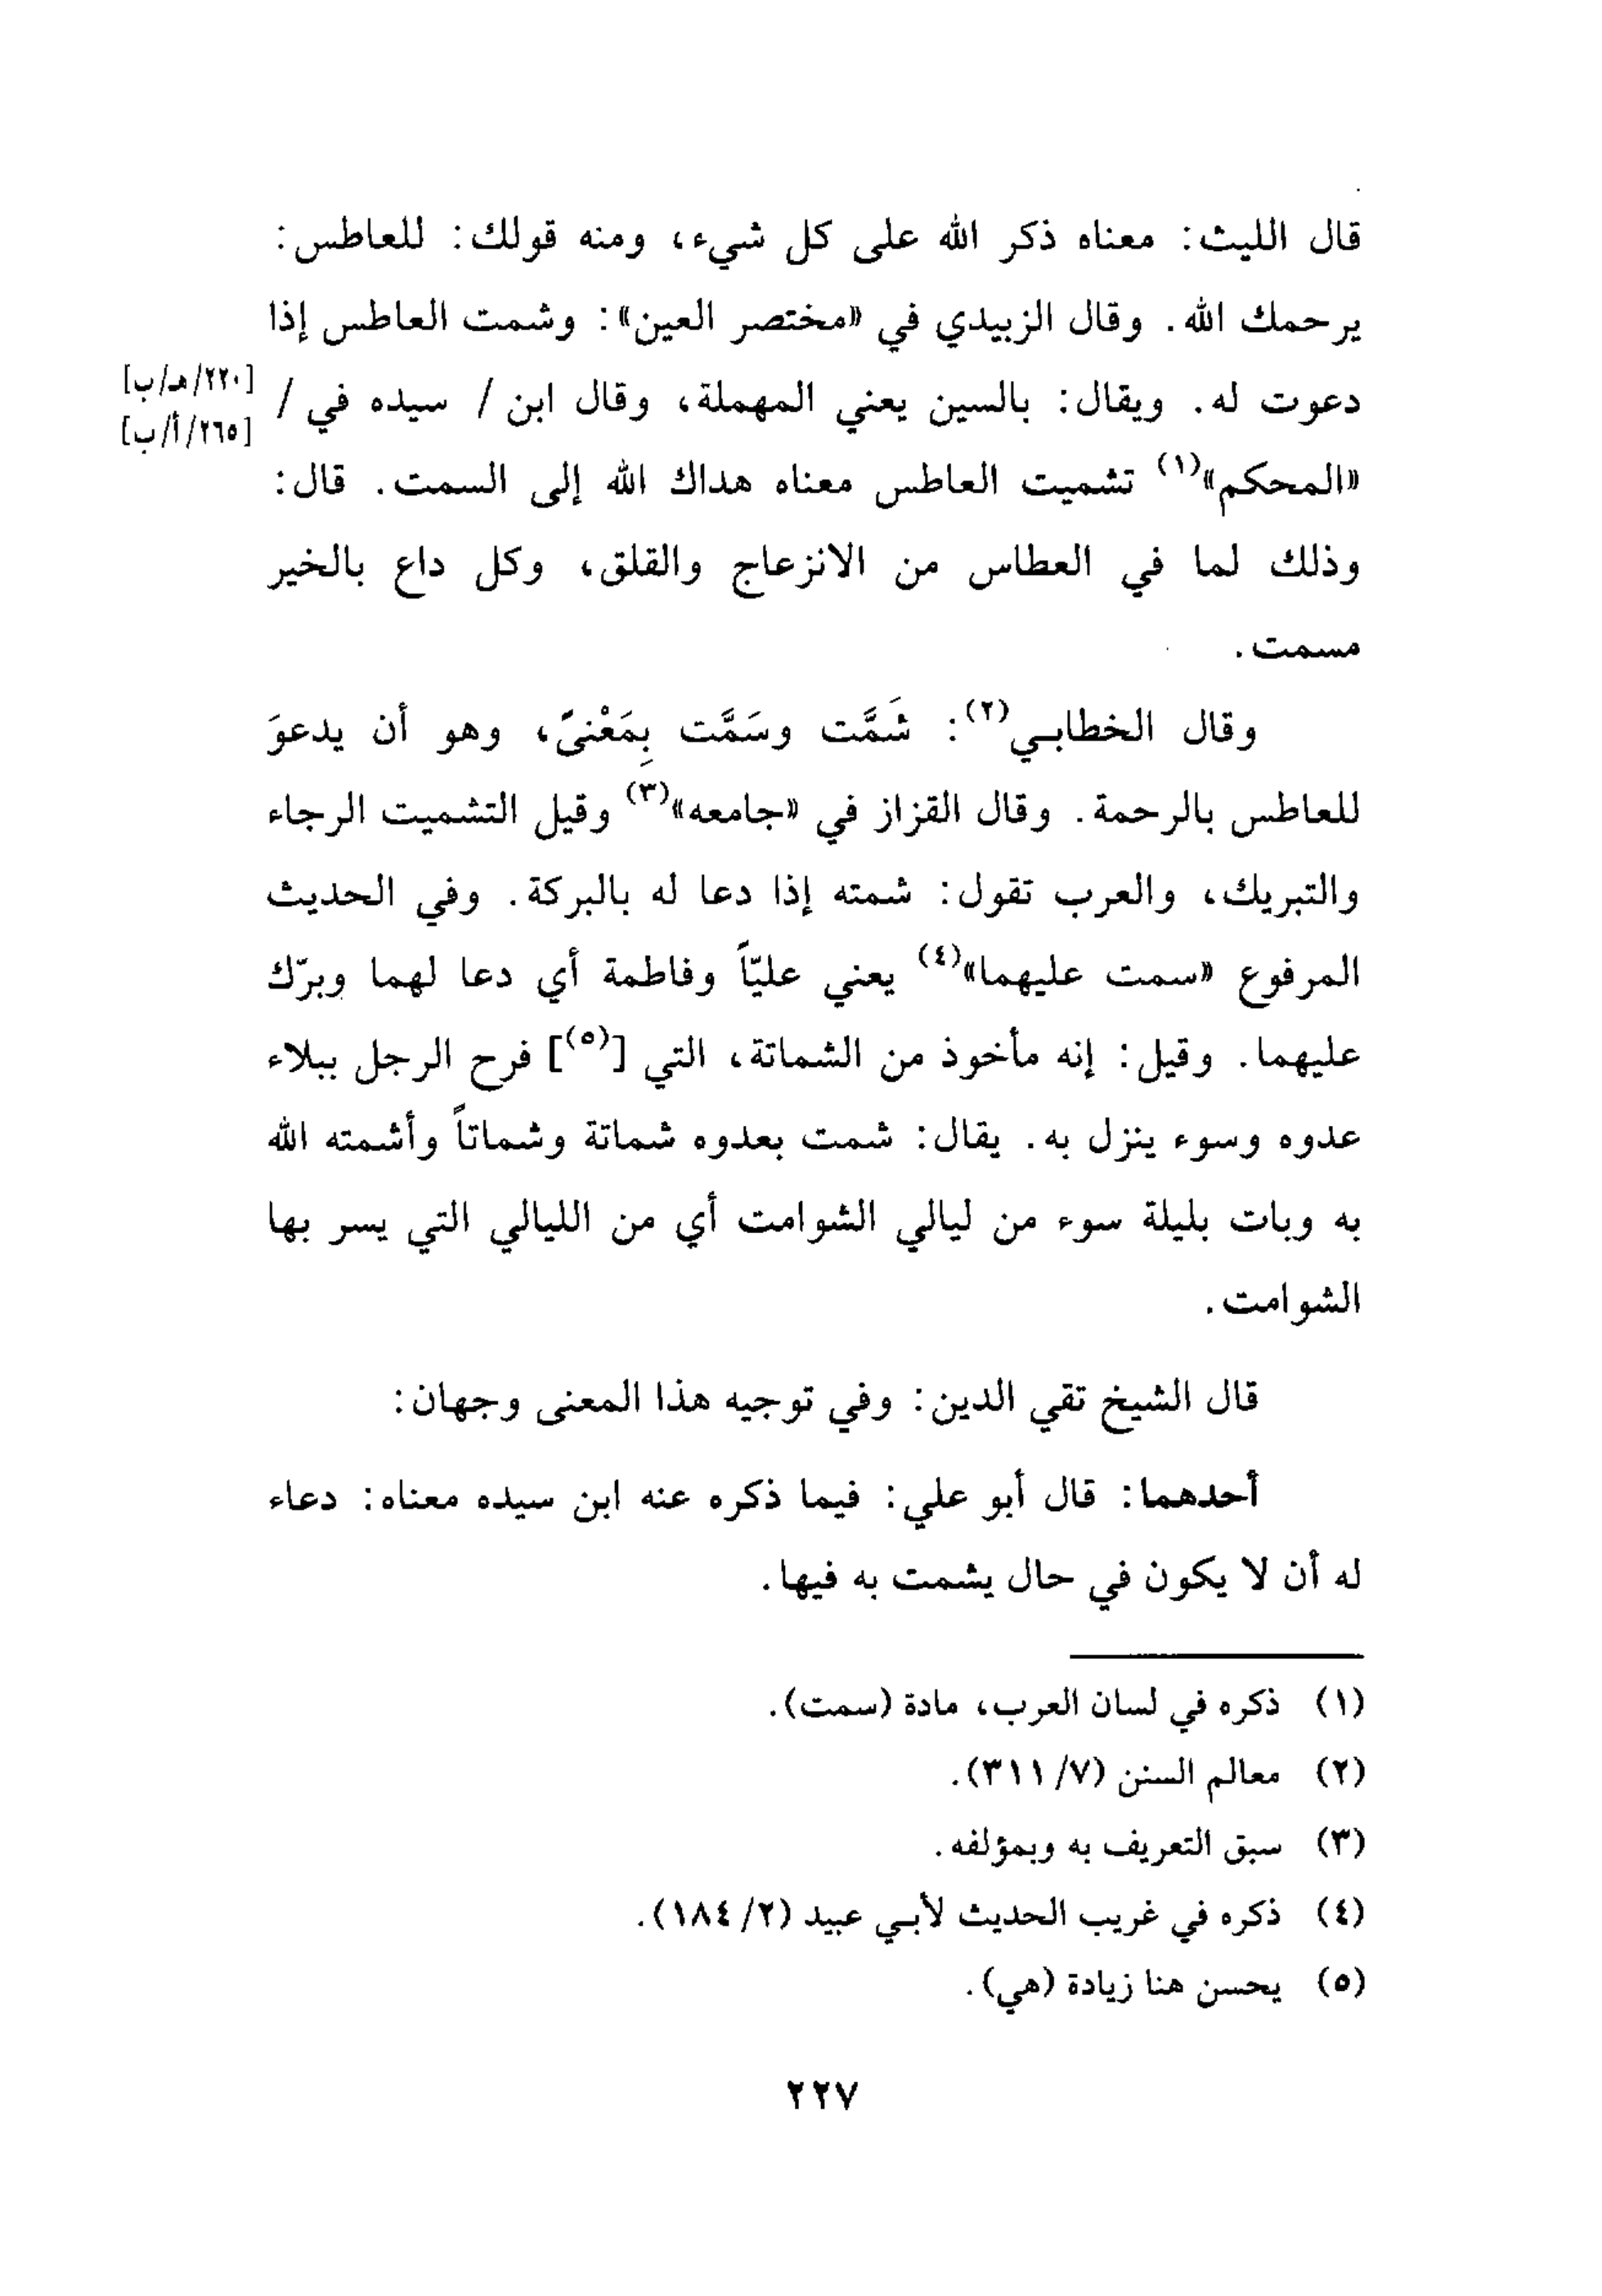 قال الليث: معناه ذكر الله على كل شيء، ومنه قولك: للعاطس:
يرحمك الله. وقال الزبيدي في «مختصر العين»: وشمت العاطس إذا
دعوت له. ويقال: بالسين يعني المهملة، وقال ابن / سيده في /
[٢٢٠/هـ/ب]
[٢٦٥/أ/ب]
«المحكم»(١) تشميت العاطس معناه هداك الله إلى السمت. قال:
وذلك لما في العطاس من الانزعاج والقلق، وكل داع بالخير
مسمت.
وقال الخطابـي(٢): شَمَّت وسَمَّت بِمَعْنىً، وهو أن يدعوَ
للعاطس بالرحمة. وقال القزاز في «جامعه»(٣) وقيل التشميت الرجاء
والتبريك، والعرب تقول: شمته إذا دعا له بالبركة. وفي الحديث
المرفوع «سمت عليهما»(٤) يعني عليّاً وفاطمة أي دعا لهما وبرّك
عليهما. وقيل: إنه مأخوذ من الشماتة، التي [(٥)] فرح الرجل ببلاء
عدوه وسوء ينزل به. يقال: شمت بعدوه شماتة وشماتاً وأشمته الله
به وبات بليلة سوء من ليالي الشوامت أي من الليالي التي يسر بها
الشوامت.
قال الشيخ تقي الدين: وفي توجيه هذا المعنى وجهان:
أحدهما: قال أبو علي: فيما ذكره عنه ابن سيده معناه: دعاء
له أن لا يكون في حال يشمت به فيها.
(١) ذكره في لسان العرب، مادة (سمت).
(٢) معالم السنن (٧/ ٣١١).
(٣) سبق التعريف به وبمؤلفه.
(٤) ذكره في غريب الحديث لأبـي عبيد (٢/ ١٨٤).
(٥) يحسن هنا زيادة (هي).
٢٢٧